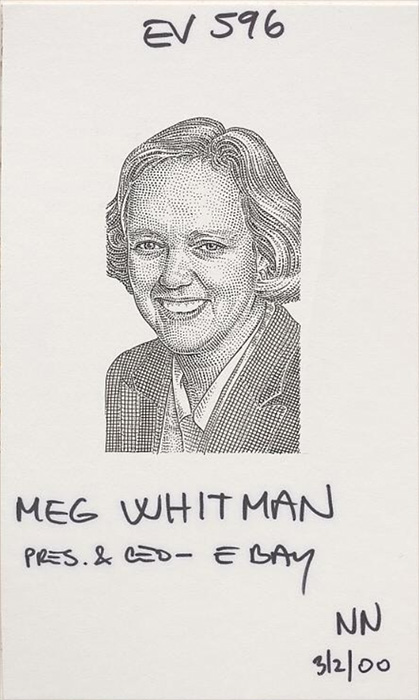 EV 596
MEG WHITMAN
PRES. & CEO- E BAY
NN
3/2/00